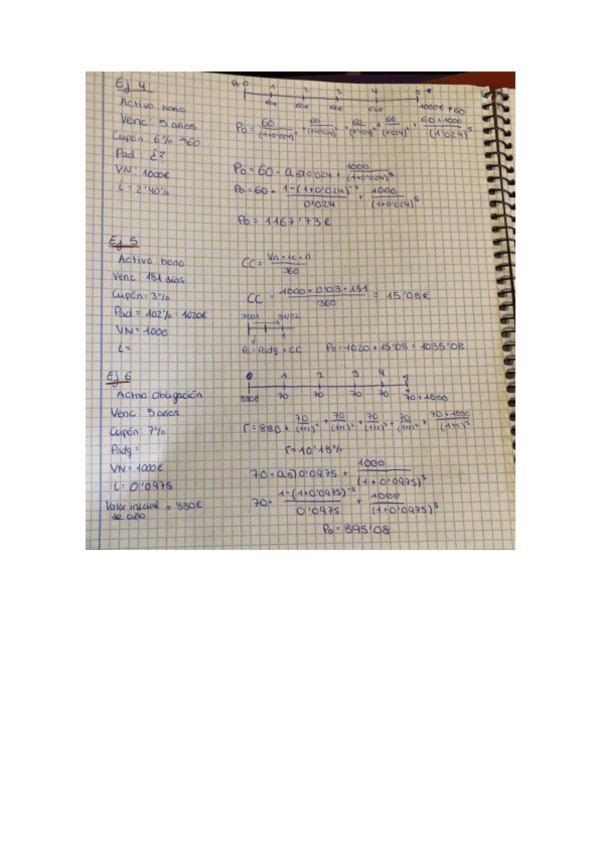 Ej 4
Activo bono
Venc: 5 años
Cupón: 6% → 60
Pad: ¿?
VN: 1000€
i = 2'40%
P0 0 1 2 3 4 5
60€ 60€ 60€ 60€ 1000€ + 60
P0 = 60/(1+0'024)¹ + 60/(1+0'024)² + 60/(1+0'024)³ + 60/(1+0'024)⁴ + 60+1000/(1+0'024)⁵
P0 = 60 · a5⅂0'024 + 1000/(1+0'024)⁵
P0 = 60 · 1-(1+0'024)⁻⁵/0'024 + 1000/(1+0'024)⁵
P0 = 1167'73€
Ej 5
Activo bono
Venc: 181 días
Cupón: 3%
Pad = 102% = 1020€
VN = 1000
i =
CC = Vn · ic · n/360
CC = 1000 · 0'03 · 181/360 = 15'08€
P0 = Padq + CC P0 = 1020 + 15'08 = 1035'08
Ej 6
Activo Obligación
Venc: 5 años
Cupón: 7%
Padq =
VN = 1000€
i = 0'0975
Valor inicial de año = 880€
0 1 2 3 4 5
880€ 70 70 70 70 70+1000
r = 880 + 70/(1+r)¹ + 70/(1+r)² + 70/(1+r)³ + 70/(1+r)⁴ + 70+1000/(1+r)⁵
r = 10'18%
70 · a5⅂0'0975 + 1000/(1+0'0975)⁵
70 · 1-(1+0'0975)⁻⁵/0'0975 + 1000/(1+0'0975)⁵
P0 = 895'08